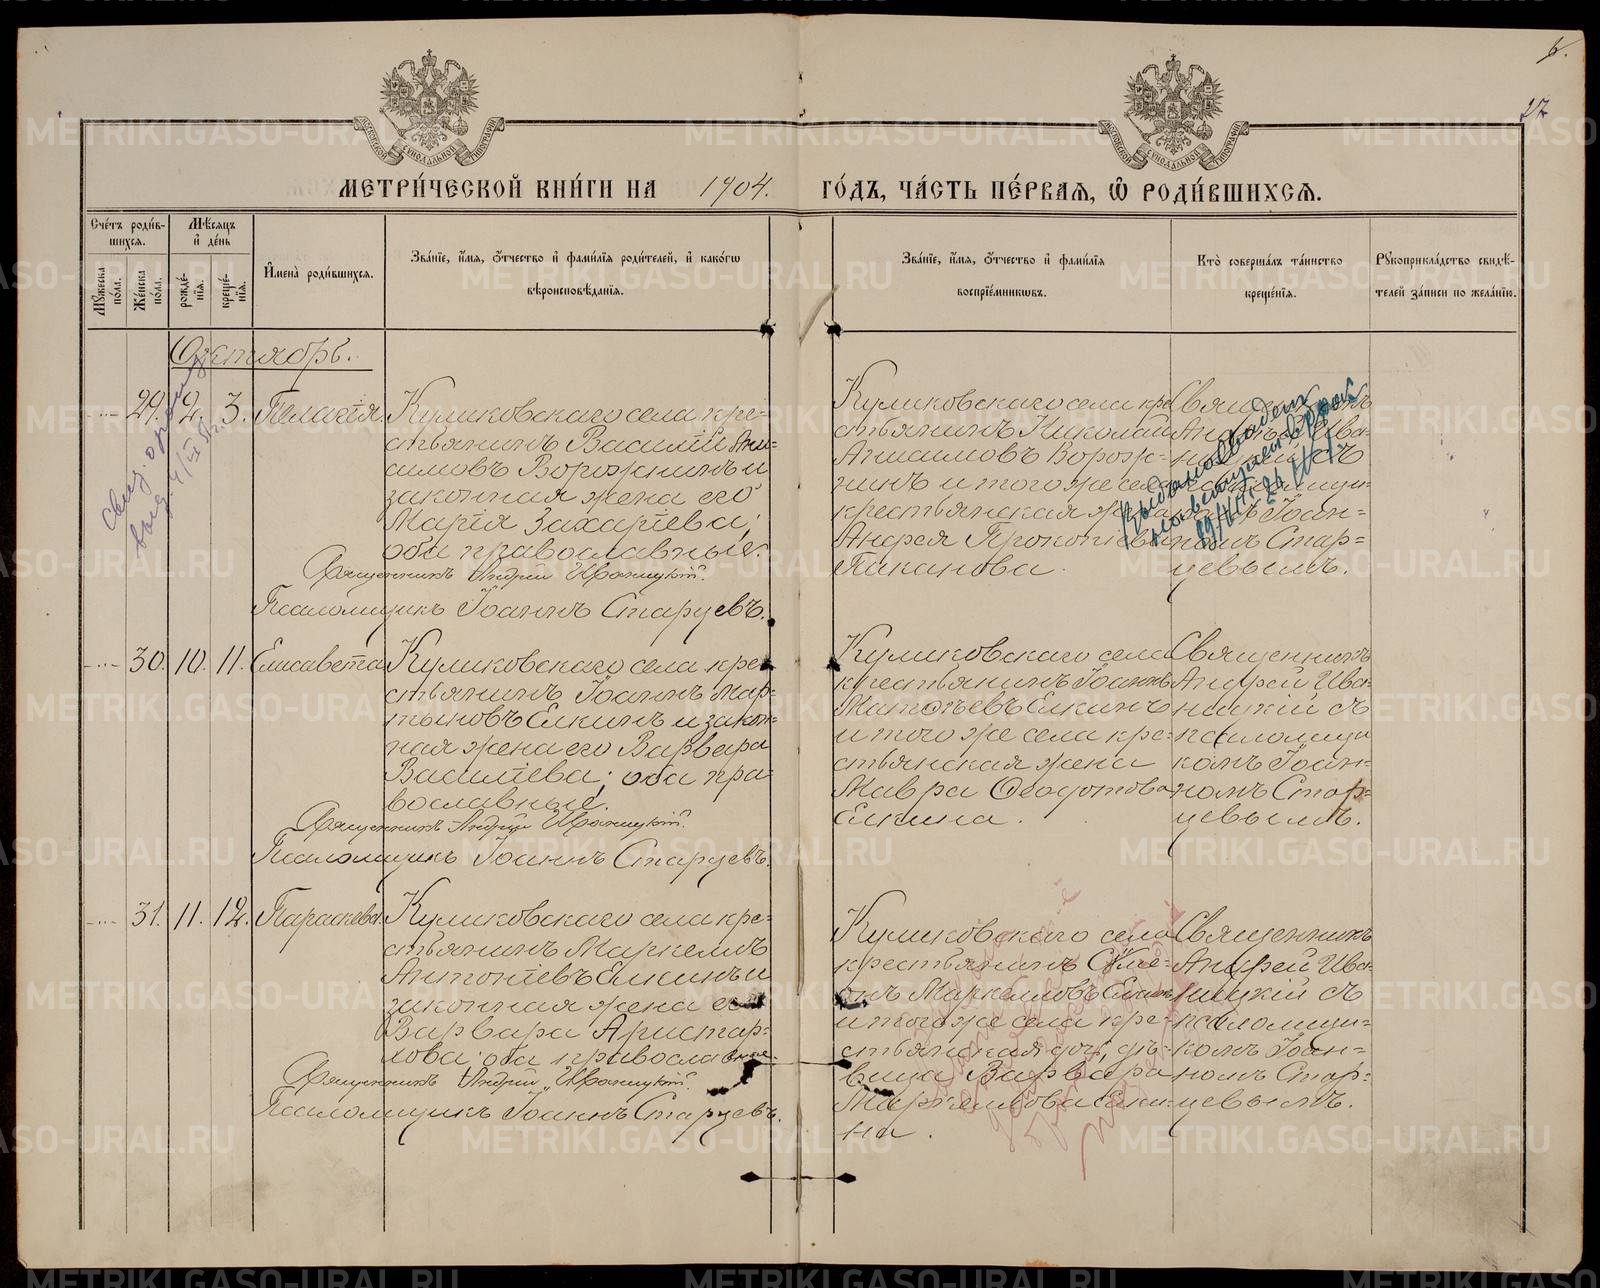 6.
27
МЕТРИ́ЧЕСКОЙ КНИ́ГИ НА 1904. ГО́ДЪ, ЧА́СТЬ ПЕ́РВАЯ, Ѿ РОДИ́ВШИХСЯ.
Сче́тъ роди́в-
шихся.
Му́жеска
пола.
Же́нска
пола.
Мѣ́сяцъ
и҆ де́нь
рожде́-
нїя.
креще́-
нїя.
И҆мена̀ роди́вшихся.
Зва́нїе, и҆́мя, ѻ҆́тчество и҆ фами́лїя роди́телей, и҆ како́гѡ
вѣроисповѣ́данїя.
Зва́нїе, и҆́мя, ѻ҆́тчество и҆ фами́лїя
воспрїе́мникѡвъ.
Кто̀ соверша́лъ та́инство
креще́нїя.
Рꙋкоприкла́дство свидѣ́-
телей за́писи по жела́нїю.
Октябрь.
29. 2. 3. Пелагія.
Куликовскаго села кре-
стьянинъ Василій Ани-
симовъ Ворожнинъ и
законная жена его
Марія Захаріева;
оба православные.
Священникъ Андрей Иваницкій.
Псаломщикъ Іоаннъ Старцевъ.
Куликовскаго села кре
стьянинъ Николай
Анисимовъ Ворож-
нинъ и того же села
крестьянская жена
Андрея Прокопіева
Пиканова.
Священникъ
Андрей Ива-
ницкій съ
псаломщи-
комъ Іоан-
номъ Стар-
цевымъ.
30. 10. 11. Елисавета
Куликовскаго села кре-
стьянинъ Іоаннъ Мар-
тыновъ Елкинъ и закон-
ная жена его Варвара
Василіева; оба пра-
вославные.
Священникъ Андрей Иваницкій.
Псаломщикъ Іоаннъ Старцевъ.
Куликовскаго села
крестьянинъ Іоаннъ
Матѳѣевъ Елкинъ
и того же села кре-
стьянская жена
Мавра Ѳеодотова
Елкина.
Священникъ
Андрей Ива-
ницкій съ
псаломщи
комъ Іоан-
номъ Стар-
цевымъ.
31. 11. 12. Параскева.
Куликовскаго села кре-
стьянинъ Маркеллъ
Антоніевъ Елкинъ и
законная жена его
Варвара Аристар-
хова; оба православные.
Священникъ Андрей Иваницкій.
Псаломщикъ Іоаннъ Старцевъ.
Куликовскаго села
крестьянинъ Сѵме-
онъ Маркелловъ Елкинъ
и того же села кре-
стьянская дочь, дѣ-
вица Варвара
Маркеллова Елки-
на.
Священникъ
Андрей Ива-
ницкій съ
псаломщи-
комъ Іоан-
номъ Стар-
цевымъ.
METRIKI.GASO-URAL.RU